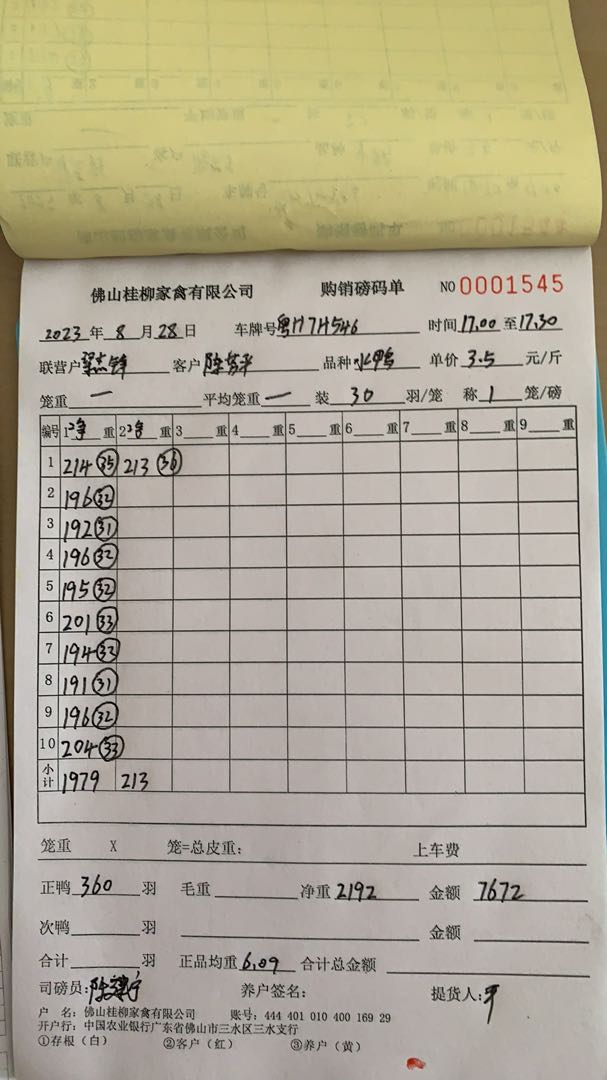 佛山桂柳家禽有限公司 购销磅码单 NO 0001545
2023 年 8 月 28 日 车牌号 粤H7H546 时间 17.00 至 17.30
联营户 客户 品种 水鸭 单价 3.5 元/斤
笼重 一 平均笼重 一 装 30 羽/笼 称 1 笼/磅
编号 1 净 重 2 净 重 3 重 4 重 5 重 6 重 7 重 8 重 9 重
1 214 35 213 36
2 196 32
3 192 31
4 196 32
5 195 32
6 201 33
7 194 33
8 191 31
9 196 32
10 204 33
小计 1979 213
笼重 X 笼=总皮重: 上车费
正鸭 360 羽 毛重 净重 2192 金额 7672
次鸭 羽 金额
合计 羽 正品均重 6.09 合计总金额
司磅员: 养户签名: 提货人:
户 名: 佛山桂柳家禽有限公司 账号: 444 401 010 400 169 29
开户行: 中国农业银行广东省佛山市三水区三水支行
①存根(白) ②客户(红) ③养户(黄)